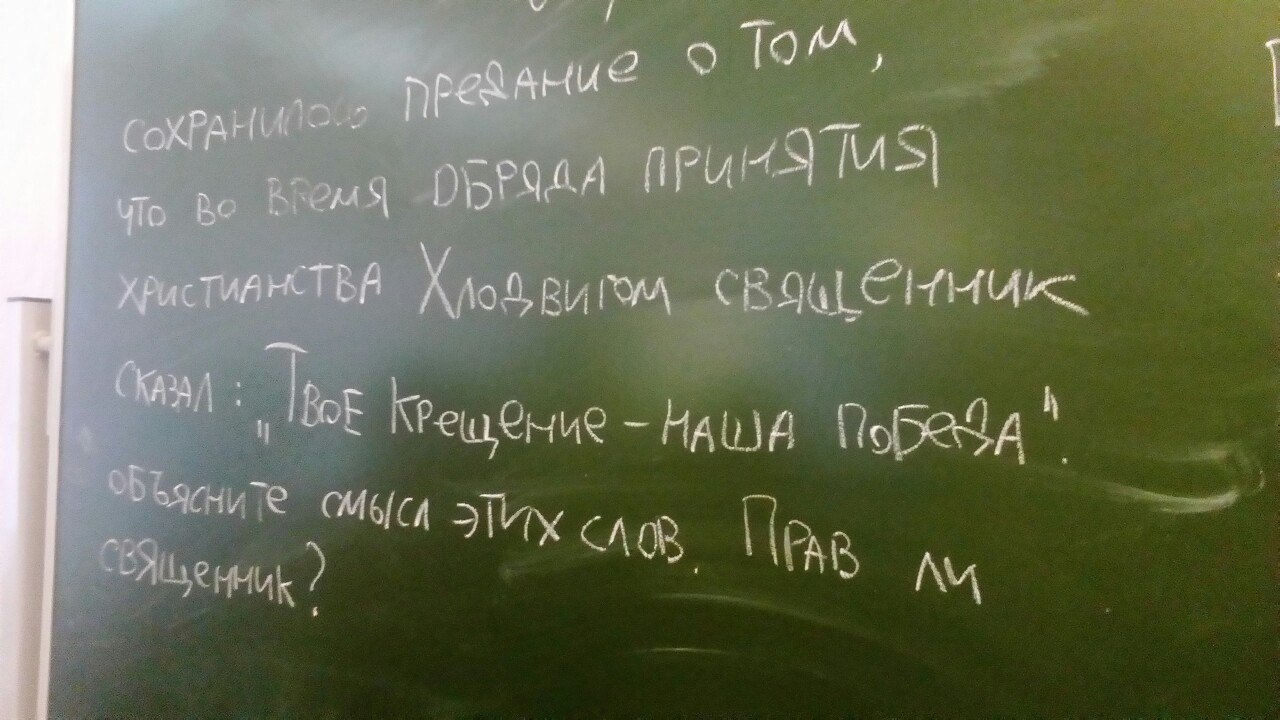 сохранилось предание о том,
что во время обряда принятия
христианства Хлодвигом священник
сказал: „Твое крещение – наша победа".
объясните смысл этих слов. Прав ли
священник?